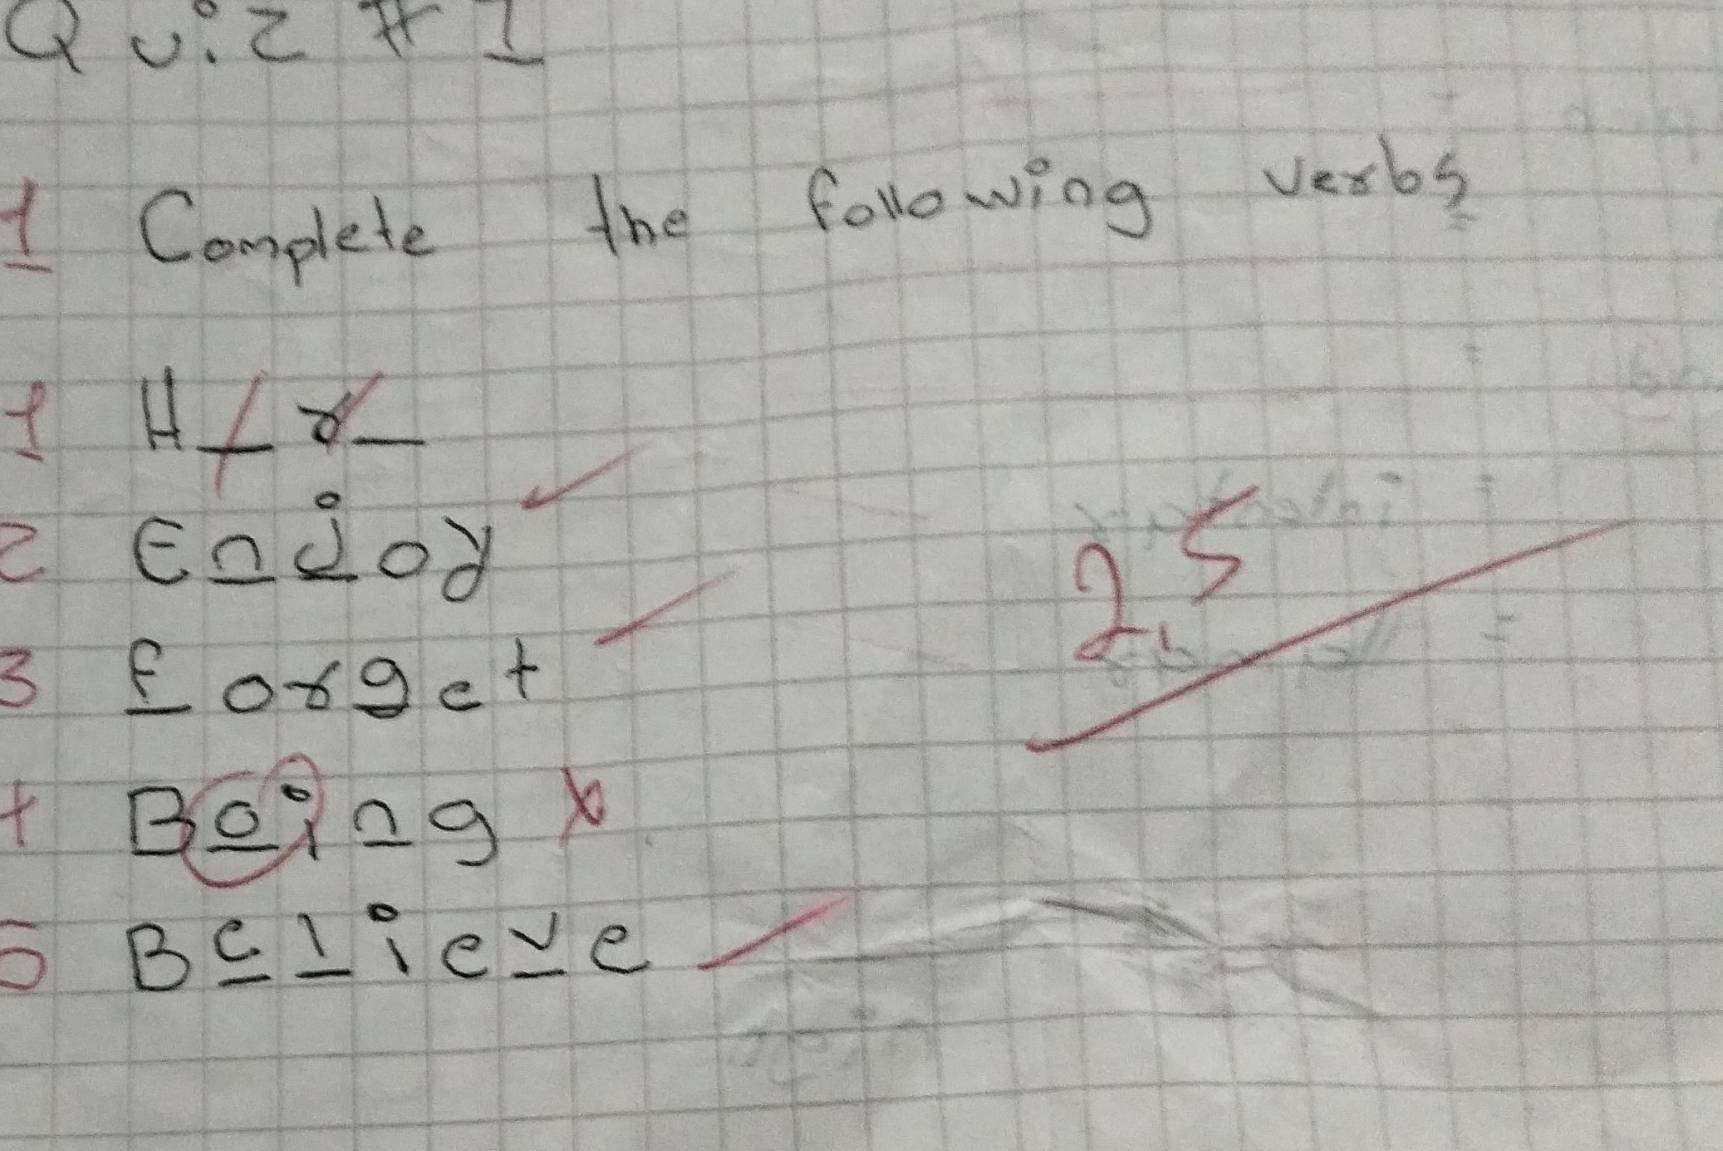 Quiz #1
1 Complete the following verbs
1 H_r_
2 Enjoy
3 forget
4 Boing x
5 Believe
2.5